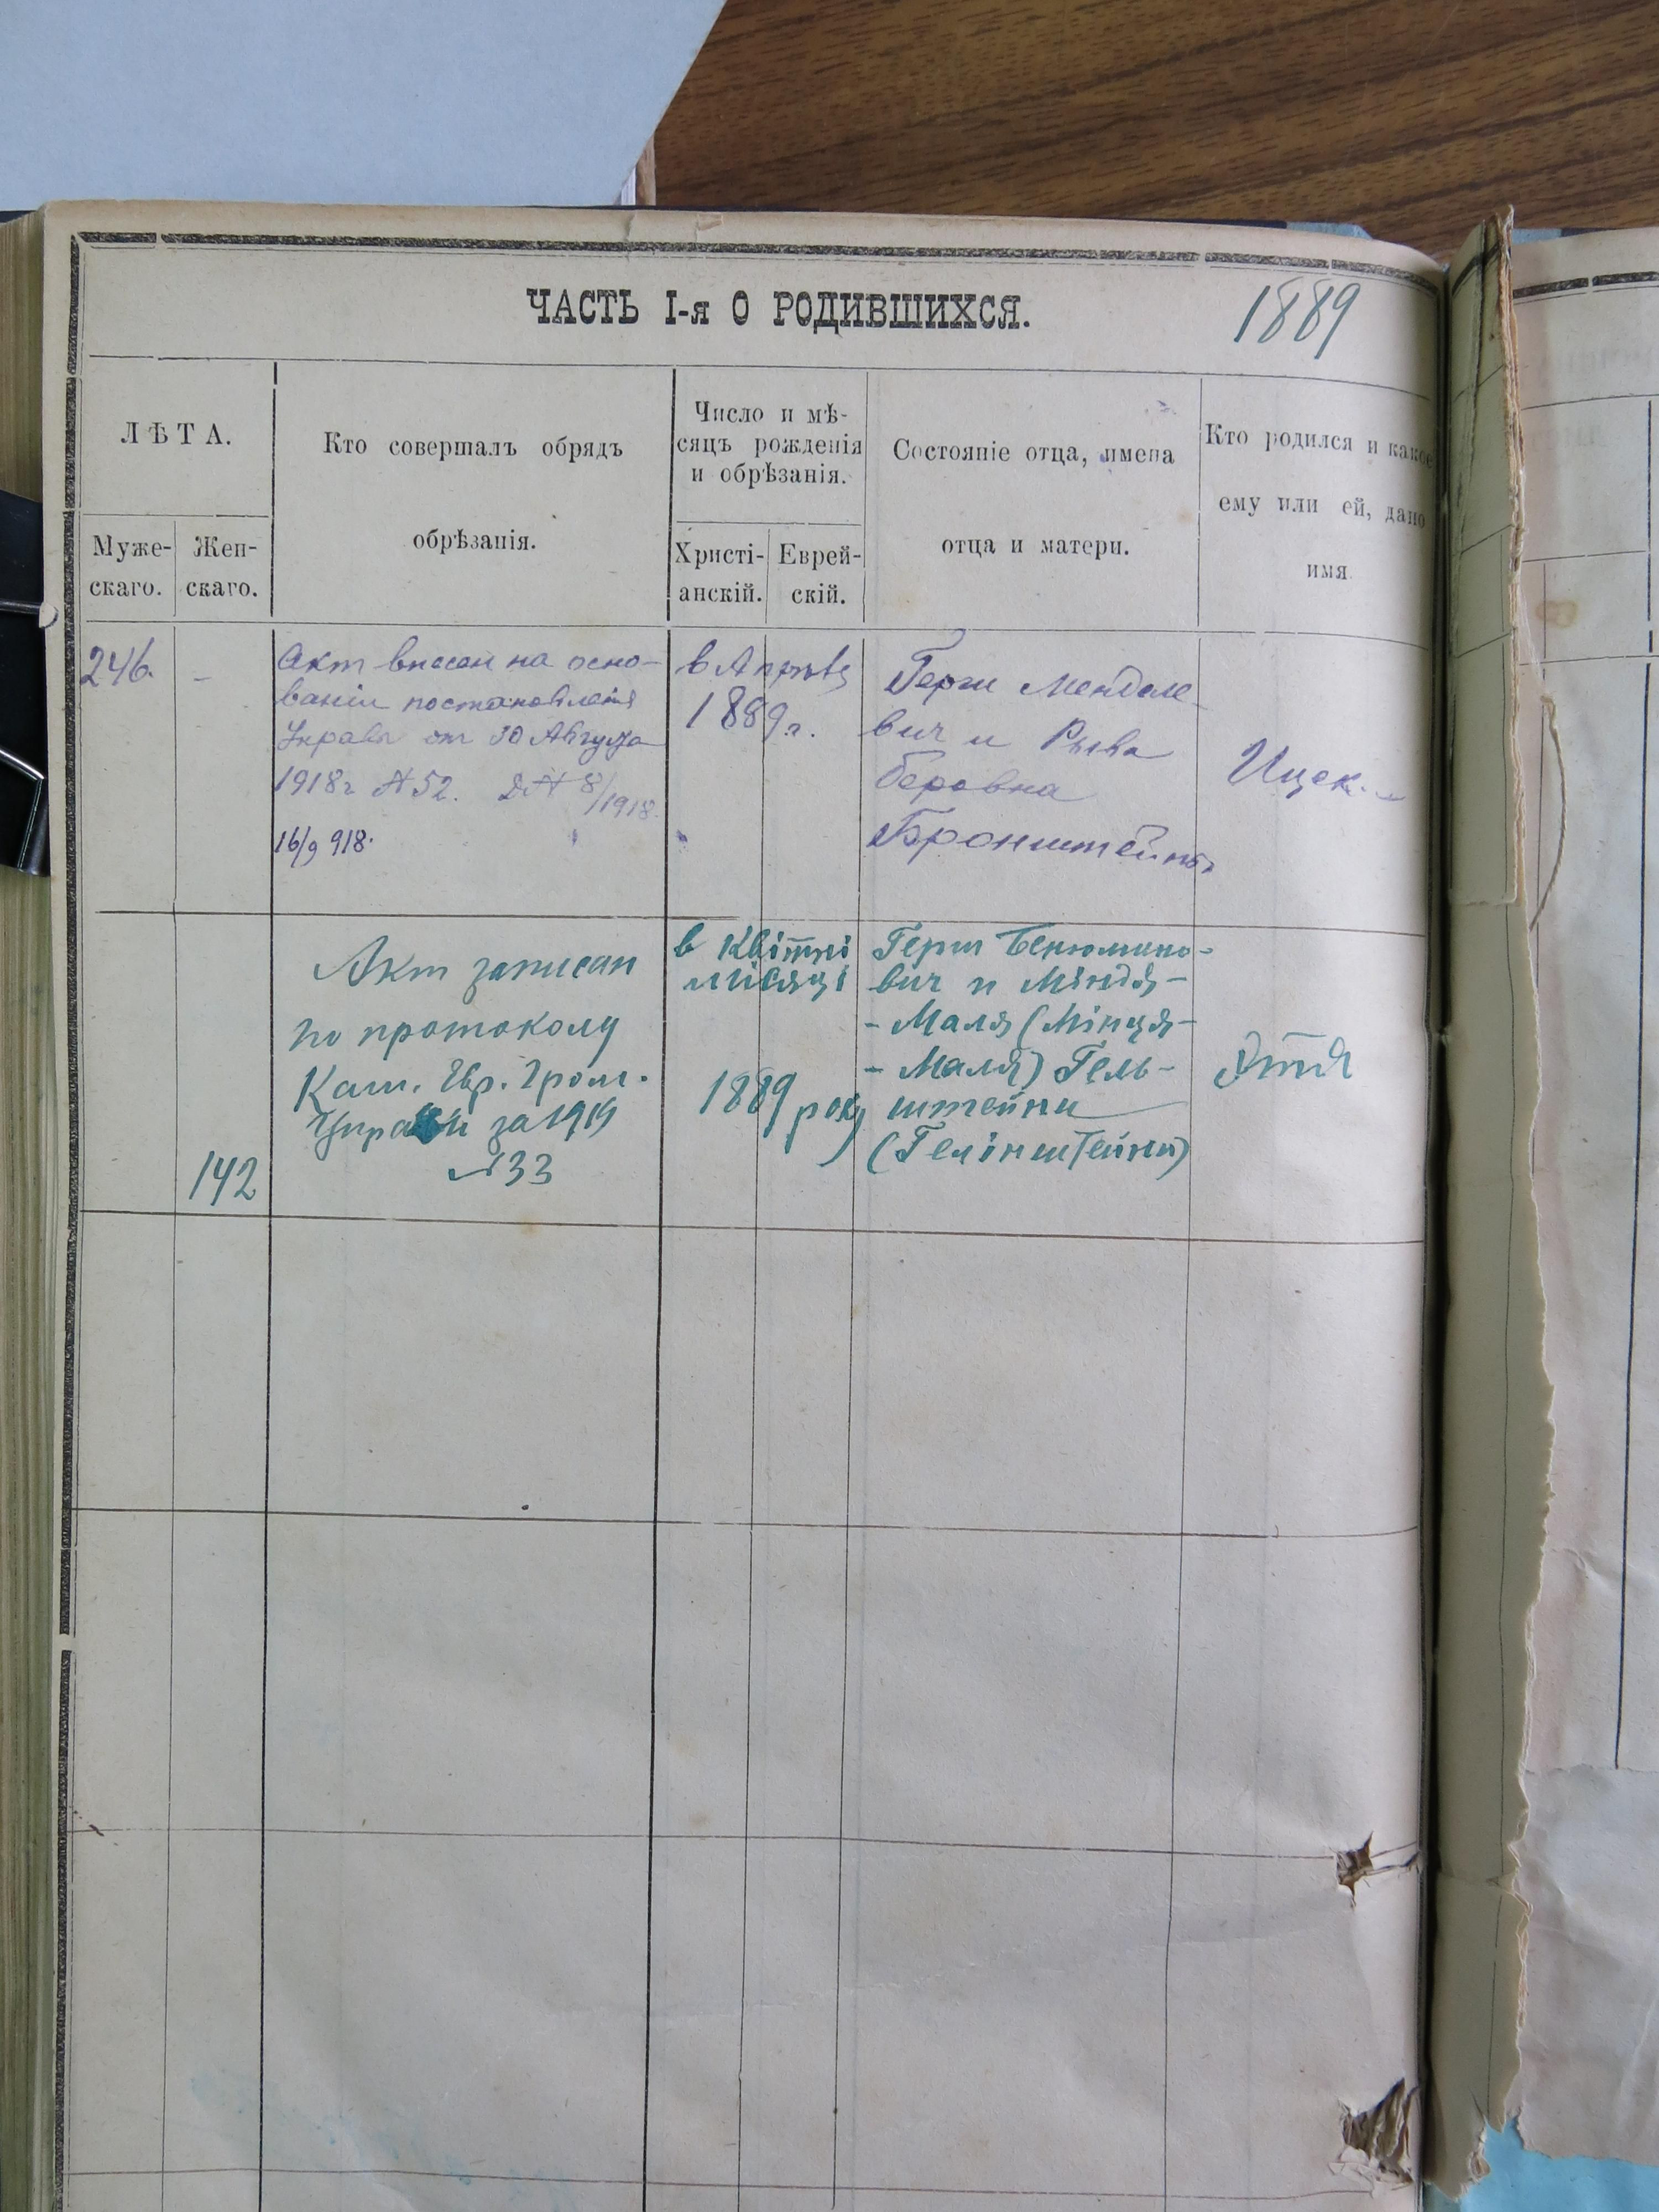 ЧАСТЬ I-я О РОДИВШИХСЯ.
1889
ЛѢТА.
Муже-
скаго.
Жен-
скаго.
Кто совершалъ обрядъ
обрѣзанія.
Число и мѣ-
сяцъ рожденія
и обрѣзанія.
Христі-
анскій.
Еврей-
скій.
Состояніе отца, имена
отца и матери.
Кто родился и какое
ему или ей, дано
имя
246.
-
Акт внесен на осно-
ваніи постановленія
Управы от 30 Августа
1918г №52. Д№ 8/1918.
16/9 918.
в Апрѣлѣ
1889г.
Герш Менделе-
вич и Рыва
Беровна
Бронштейны
Ицек.
142
Акт записан
по протоколу
Кам. Евр. Гром.
Управи за 1919
№33
в Квітні
місяці
1889 року
Герш Бенюмино-
вич и Міндя-
- Маля (Мінця-
- Маля) Гель-
штейни
(Гелінштейни)
Этя